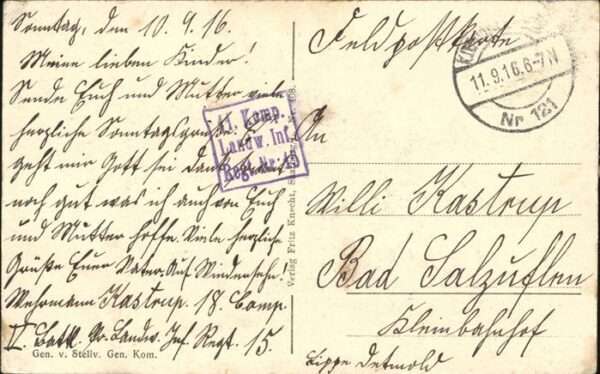 Sonntag, den 10.9.16
Meine lieben Kinder!
Sende Euch und Mutter viele
herzliche Sonntagsgrüße. Es
geht mir Gott sei dank
noch gut was ich auch von Euch
und Mutter hoffe. Viele herzliche
Grüße Euer Vater. Auf Wiedersehn.
Wehrmann Kastrup. 18. Comp.
Batl. Landw. Inf. Regt. 15.
Gen. v. Stellv. Gen. Kom.
11. Komp.
Landw. Inf.
Regt. Nr. 15
Verlag Fritz Knecht,
Feldpostkarte
11.9.16.6-7N
Nr 121
An
Willi Kastrup
Bad Salzuflen
Kleinbahnhof
Lippe Detmold